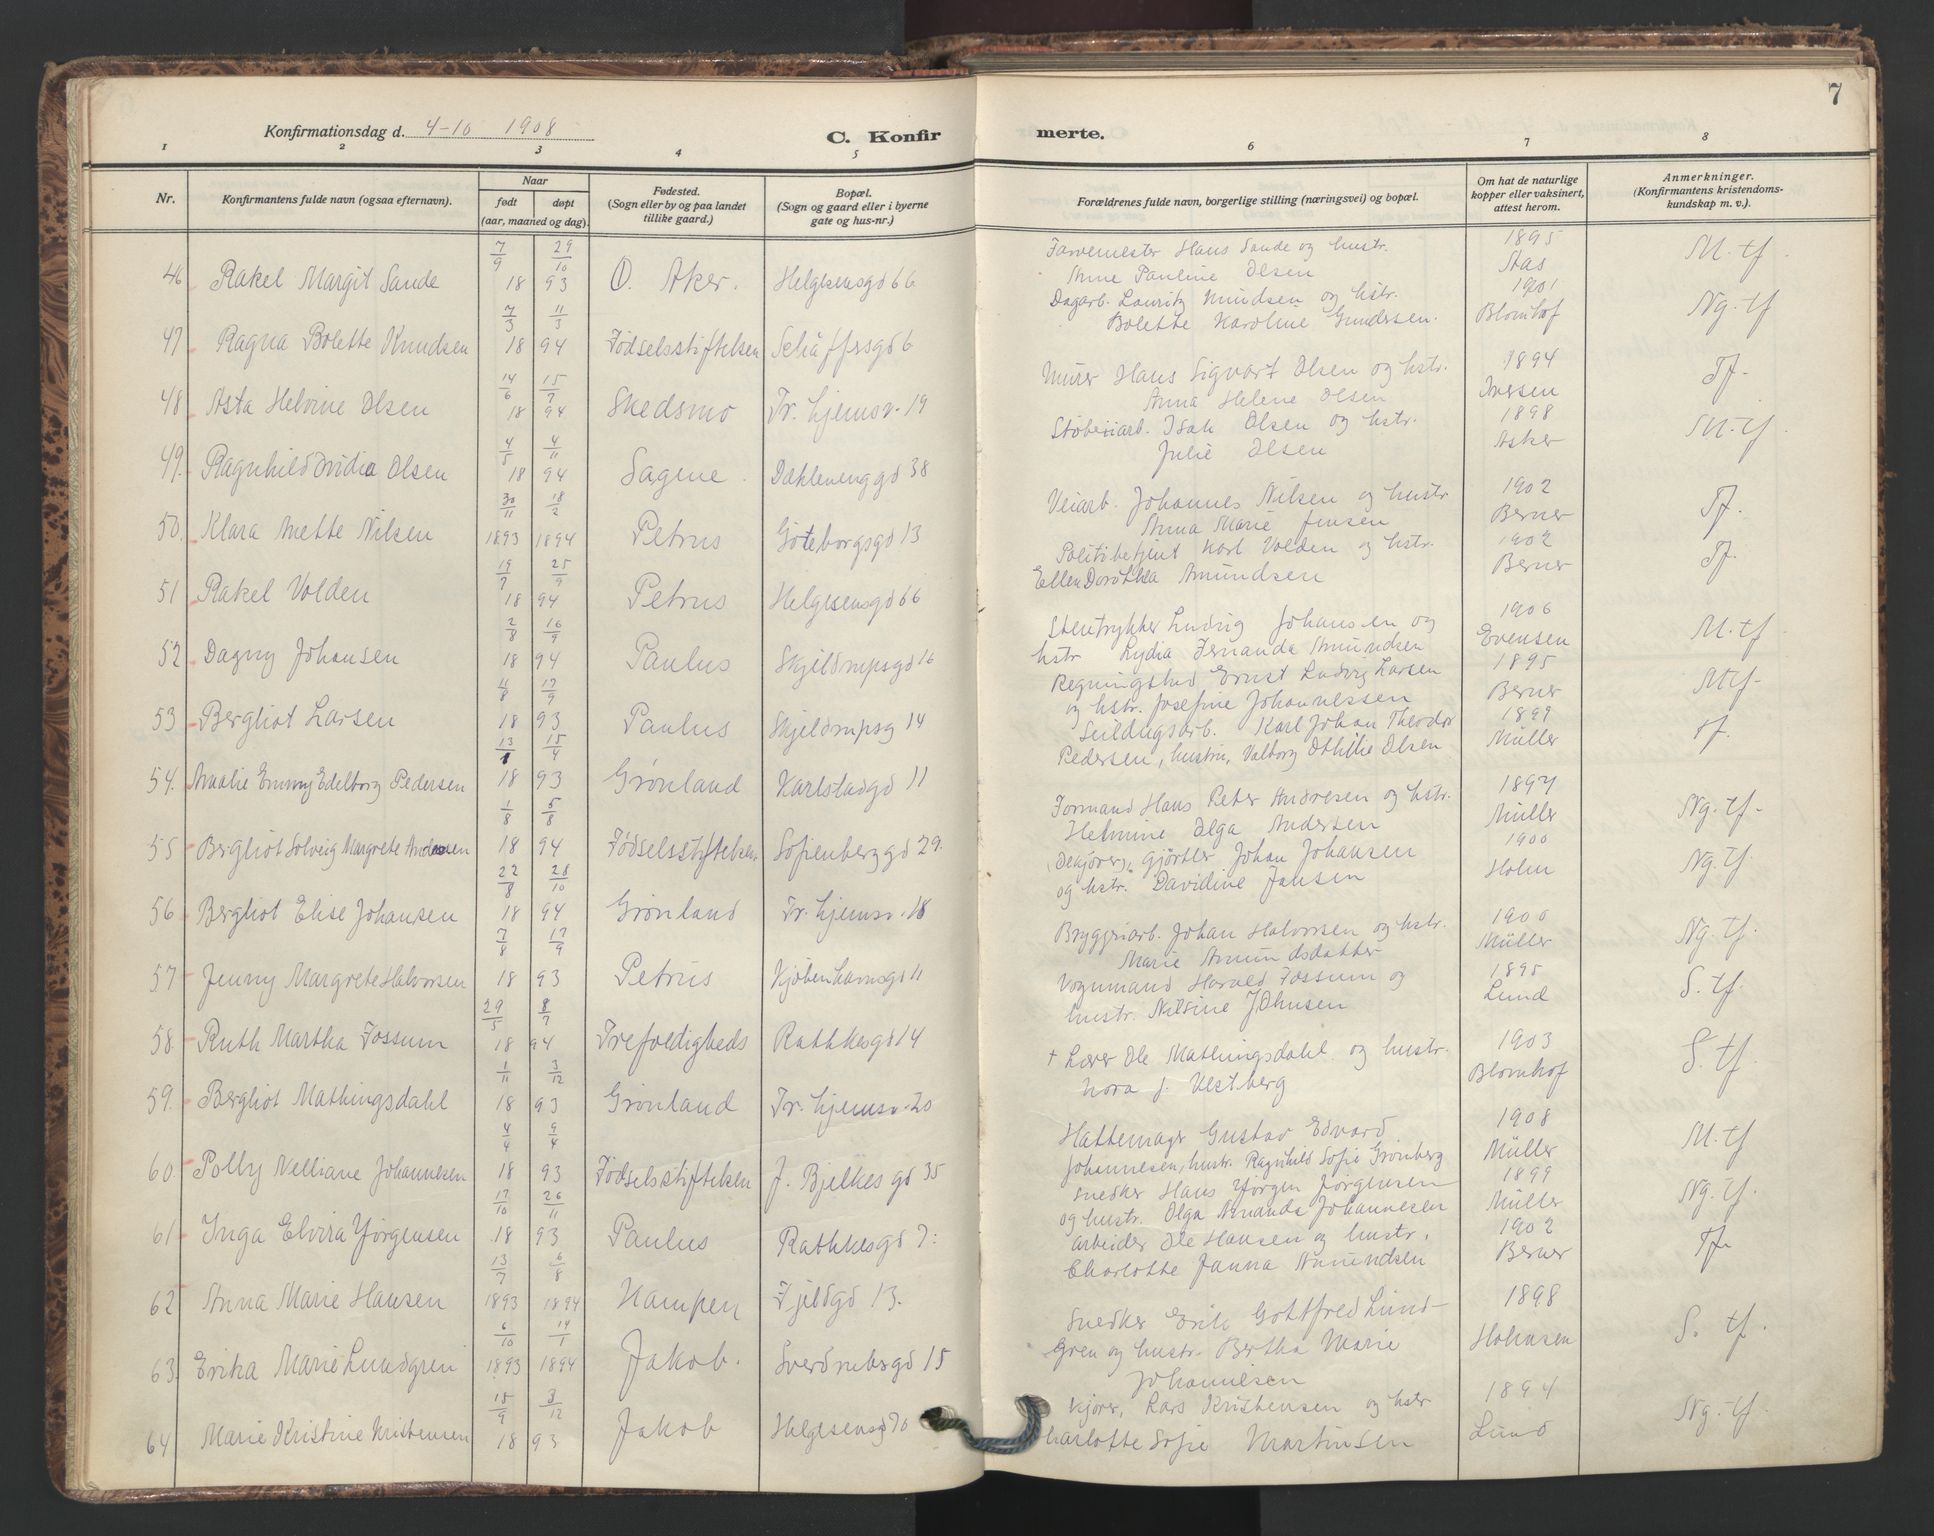 7
Konfirmationsdag d. 4-10 1908
C. Konfir merte.
1 2 3 4 5 6 7 8
Nr. Konfirmantens fulde navn (ogsaa efternavn).
Naar
født døpt
(aar, maaned og dag).
Fødested.
(Sogn eller by og paa landet
tillike gaard.)
Bopæl.
(Sogn og gaard eller i byerne
gate og hus-nr.)
Forældrenes fulde navn, borgerlige stilling (næringsvei) og bopæl.
Om hat de naturlige
kopper eller vaksinert,
attest herom.
Anmerkninger.
(Konfirmantens kristendoms-
kundskap m. v.).
46 Rakel Margit Sande 7/9 29/10 18 93 Ø. Aker. Helgesensgd 66
Farvemester Hans Sande og hustr.
Anne Pauline Olsen
1895 Aas M. tf.
47 Ragna Bolette Knudsen 7/3 11/3 18 94 Fødselsstiftelsen Schäffersgd 6
Dagarb. Lauritz Knudsen og hstr.
Bolette Karoline Gundersen.
1901 Blomhof Ng. tf
48 Asta Helvine Olsen 14/6 15/7 18 94 Skedsmo Tr. hjemsv. 19
Murer Hans Sigvart Olsen og hstr.
Anna Helene Olsen
1894 Iversen Tf.
49. Ragnhild Ovidia Olsen 4/5 4/11 18 94 Sagene Dæhlenenggd 38
Støberiarb. Isak Olsen og hstr.
Julie Olsen
1898 Asker M. tf.
50. Klara Anette Nilsen 30/11 18/2 1893 1894 Petrus Gøteborgsgd 13
Veiarb. Johannes Nilsen og hustr
Anna Marie Jensen
1902 Berner Tf.
51 Rakel Volden 19/7 25/9 18 94 Petrus Helgesensgd 66
Politibetjent Karl Volden og hstr.
Ellen Dorothea Amundsen
1902 Berner Tf.
52 Dagny Johansen 2/8 16/9 18 94 Paulus Skjeldrupsgd 16
Stentrykker Ludvig Johansen og
hstr Lydia Fernanda Amundsen
1906 Evensen M. tf.
53 Bergliot Larsen 11/8 17/9 18 93 Paulus Skjeldrupsg 14
Regningsbud Ernst Ludvig Larsen
og hstr. Josefine Johannessen
1895 Berner Mtf.
54. Amalie Emmy Edelborg Pedersen 13/1 15/4 18 93 Grønland Karlstadgd 11
Seildugsarb. Karl Johan Theodor
Pedersen, hustru, Valborg Othilie Olsen
1899 Müller tf.
55 Bergliot Solveig Margrete Andresen 1/8 5/8 18 94 Fødselsstiftelsen. Sofienberggd 29.
Formand Hans Peter Andresen og hstr.
Helmine Olga Andersen
1897 Müller Ng. tf.
56 Bergliot Elise Johansen 22/8 28/10 18 94 Grønland Tr. hjemsv. 18
Gjørtler Johan Johansen
og hstr. Davidine Jansen
1900 Holm Ng. tf.
57 Jenny Margrete Halvorsen 7/8 17/9 18 93 Petrus Kjøbenhavnsgd 11
Bryggeriarb. Johan Halvorsen og hstr.
Marie Amundsdatter
1900 Müller Ng. tf.
58 Ruth Martha Fossum 29/5 8/7 18 94 Trefoldigheds Rathkesgd 14
Vognmand Harald Fossum og
hustr. Nilsine Johnsen
1895 Lund S. tf.
59. Bergliot Mathingsdahl 1/11 3/12 18 93 Grønland Tr. hjemsv. 20
+ Lærer Ole Mathingsdahl og hustr.
Nora J. Vestberg
1903 Blomhof S. tf.
60. Polly Nelliane Johannesen 4/4 9/4 18 93 Fødselsstiftelsen J. Bjelkes gd 35
Hattemager Gustav Edvard
Johannesen, hustr. Ragnhild Sofie Grønberg
1908 Müller M. tf
61 Inga Elvira Jørgensen 17/10 26/11 18 93 Paulus Rathkesgd 7.
Snedker Hans Jørgen Jørgensen
og hustr. Olga Amanda Johannesen
1899 Müller Ng. tf.
62 Anna Marie Hansen 13/7 6/8 1893 1894 Kampen Fjeldgd 13.
Arbeider Ole Hansen og hustr.
Charlotte Janna Amundsen
1902 Berner Tf.
63. Erika Marie Lundgren 6/10 14/1 1893 1894 Jakob. Sverdrubsgd 15
Snedker Erik Gottfred Lund-
gren og hustr. Bertha Marie
Johannesen
1898 Hohnsen S. tf.
64 Marie Kristine Kristensen 15/9 3/12 18 93 Jakob Helgesensg 70
Kjører, Lars Kristensen og hstr
harlotte Sofie Martinsen
1894 Lund Ng. tf.